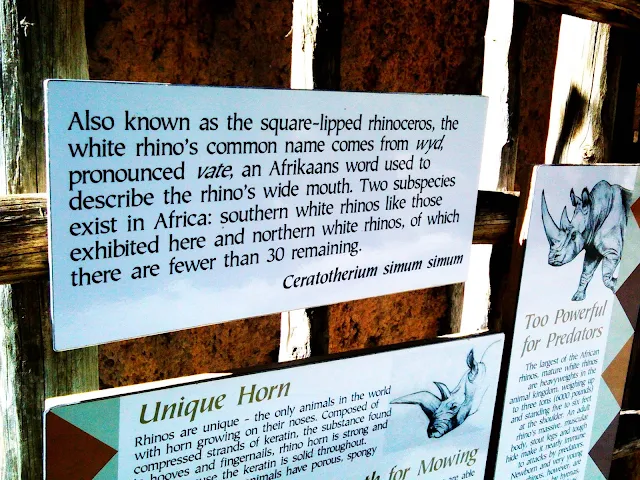 Also known as the square-lipped rhinoceros, the
white rhino's common name comes from wyd,
pronounced vate, an Afrikaans word used to
describe the rhino's wide mouth. Two subspecies
exist in Africa: southern white rhinos like those
exhibited here and northern white rhinos, of which
there are fewer than 30 remaining.
Ceratotherium simum simum
Unique Horn
Rhinos are unique - the only animals in the world
with horn growing on their noses. Composed of
compressed strands of keratin, the substance found
hooves and fingernails, rhino horn is strong and
the keratin is solid throughout.
animals have porous, spongy
for Mowing
Too Powerful
for Predators
The largest of the African
rhinos, mature white rhinos
are heavyweights in the
animal kingdom, weighing up
to three tons (6000 pounds)
and standing five to six feet
at the shoulder. An adult
rhino's massive, muscular
body, stout legs and tough
hide make it nearly immune
to attacks by predators.
Newborn and very young
rhinos, however, are